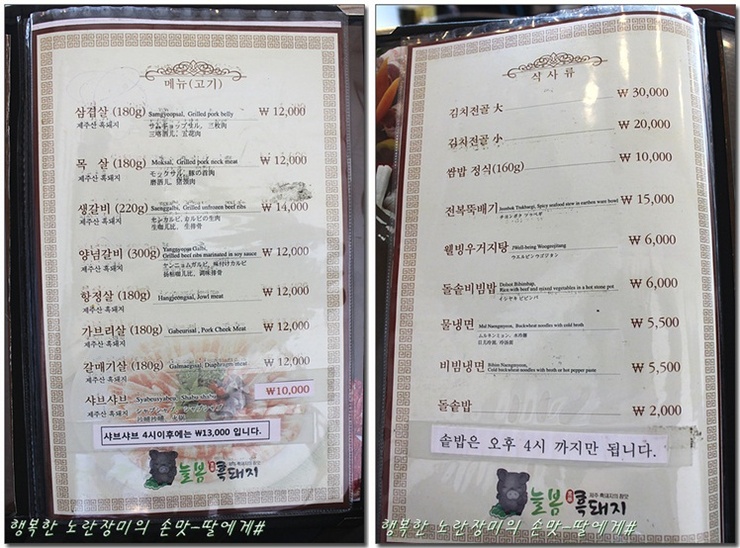 메뉴(고기)
삼겹살 (180g) Samgyeopsal, Grilled pork belly ₩ 12,000
제주산 흑돼지 サムギョップサル, 三枚肉
목 살 (180g) Moksal, Grilled pork neck meat ₩ 12,000
제주산 흑돼지 モックサル, 豚の首肉
생갈비 (220g) Saenggalbi, Grilled unfrozen beef ribs ₩ 14,000
제주산 흑돼지 センカルビ, カルビの生肉
양념갈비 (300g) Yangnyeom Galbi, ₩ 12,000
Grilled beef ribs marinated in soy sauce
ヤンニョムガルビ, 味付けカルビ
항정살 (180g) Hangjeongsal, Jowl meat ₩ 12,000
제주산 흑돼지
가브리살 (180g) Gabeurisal, Pork Cheek Meat ₩ 12,000
제주산 흑돼지
갈매기살 (180g) Galmaegisal, Diaphragm meat ₩ 12,000
제주산 흑돼지
샤브샤브 ₩10,000
제주산 흑돼지
샤브샤브 4시이후에는 ₩13,000 입니다.
늘봄 흑돼지
행복한 노란장미의 손맛-딸에게#
식 사 류
김치전골 大 ₩ 30,000
김치전골 小 ₩ 20,000
쌈밥 정식(160g) ₩ 10,000
전복뚝배기 Jeonbok Ttukbaegi, Spicy seafood stew in earthen ware bowl ₩ 15,000
웰빙우거지탕 ₩ 6,000
돌솥비빔밥 Dolsot Bibimbap, ₩ 6,000
Rice with beef and mixed vegetables in a hot stone pot
イシヤキビビンバ
물냉면 Mul Naengmyeon, Buckwheat noodles with cold broth ₩ 5,500
비빔냉면 Bibim Naengmyeon, ₩ 5,500
Cold buckwheat noodles with broth or hot pepper paste
돌솥밥 ₩ 2,000
솥밥은 오후 4시 까지만 됩니다.
늘봄 흑돼지
행복한 노란장미의 손맛-딸에게#